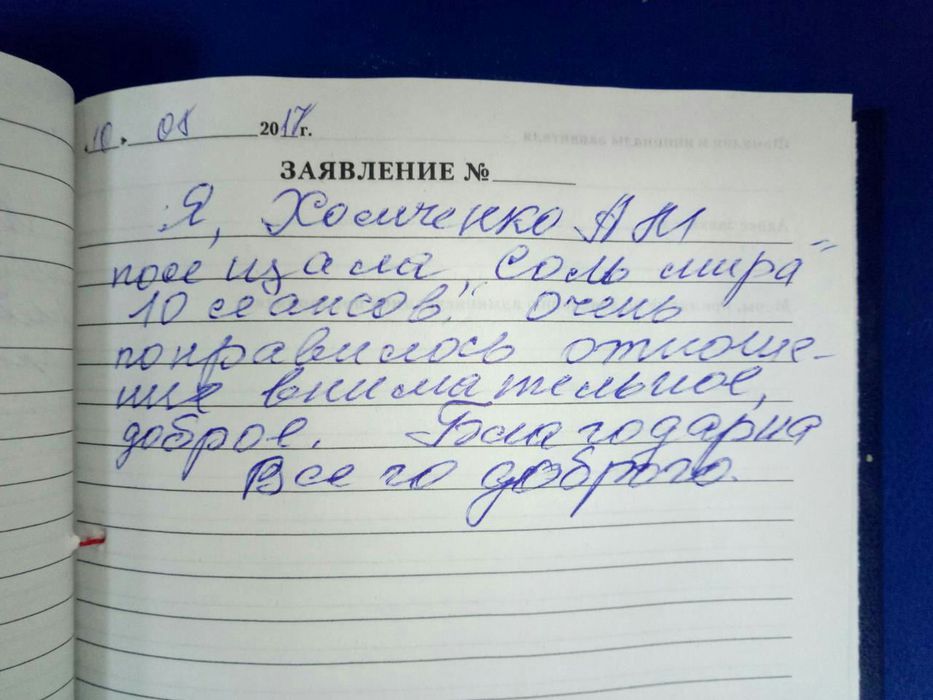 10. 08 2017г.
ЗАЯВЛЕНИЕ №
Я, Хомченко А Н
посещала „Соль мира"
10 сеансов. Очень
понравилось отноше-
ние внимательное,
доброе. Благодарна
Всего доброго.